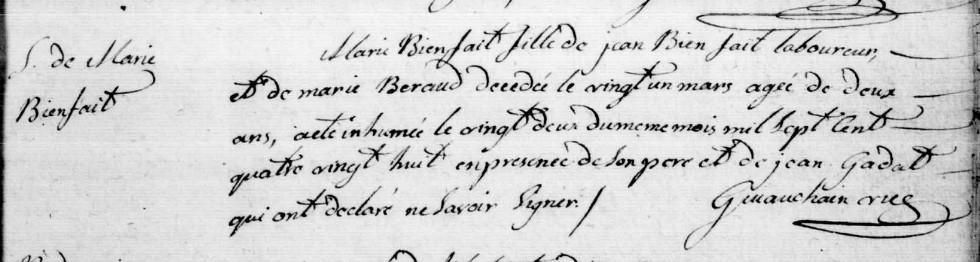 S. de Marie
Bienfait
Marie Bienfait fille de jean Bienfait laboureur,
et de marie Beraud decedée le vingt un mars agée de deux
ans, a eté inhumée le vingt deux du meme mois mil sept cent
quatre vingt huit en presence de son pere et de jean Gadat
qui ont declaré ne savoir signer. /